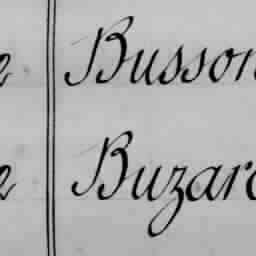 e Busson
e Buzard